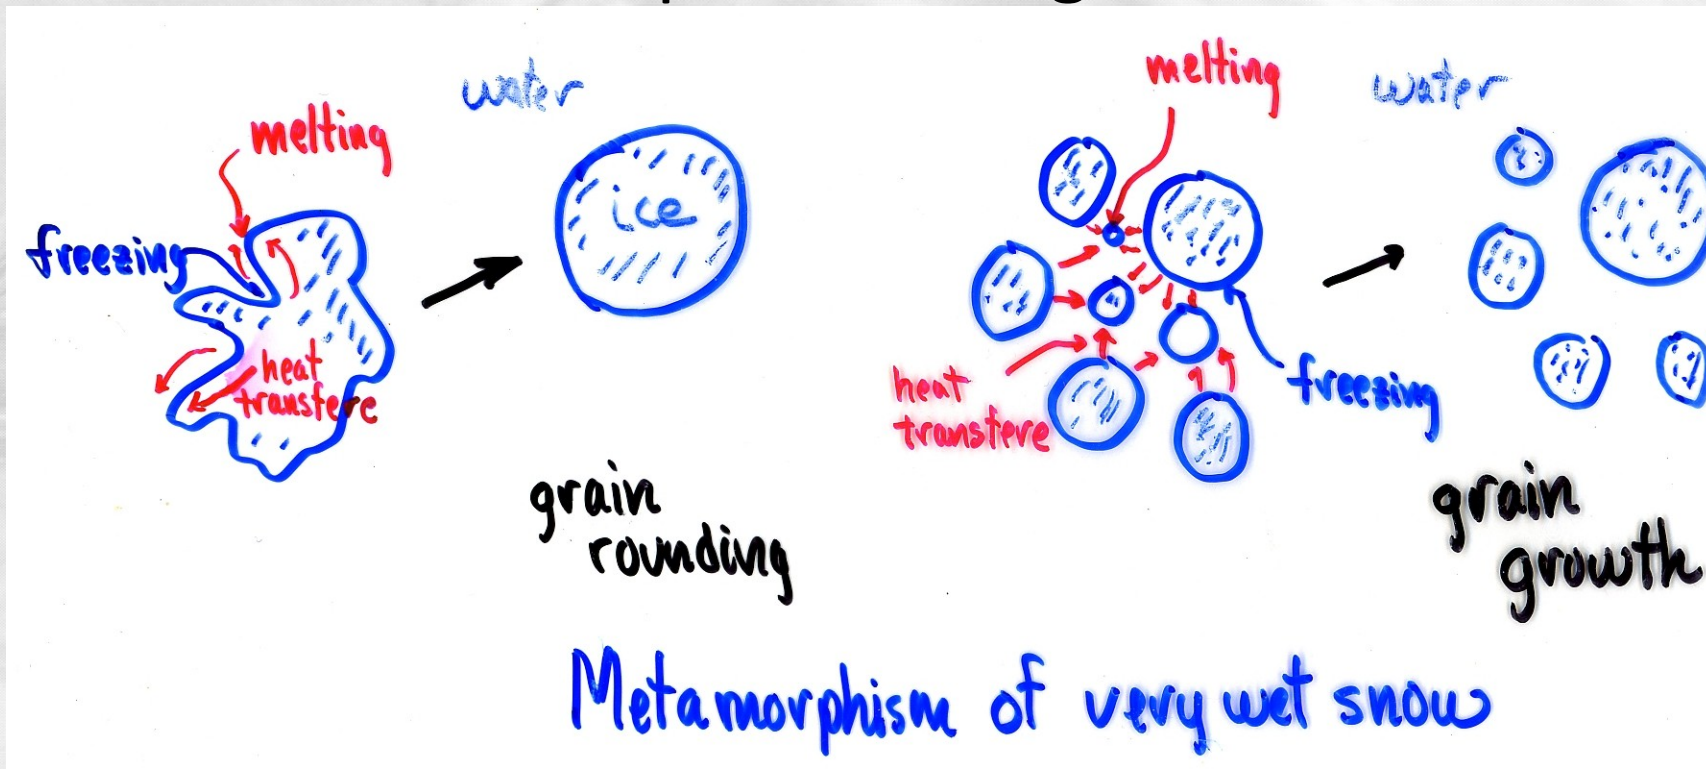 melting
water
freezing
ice
heat
transfere
grain
rounding
melting
water
heat
transfere
freezing
grain
growth
Metamorphism of very wet snow